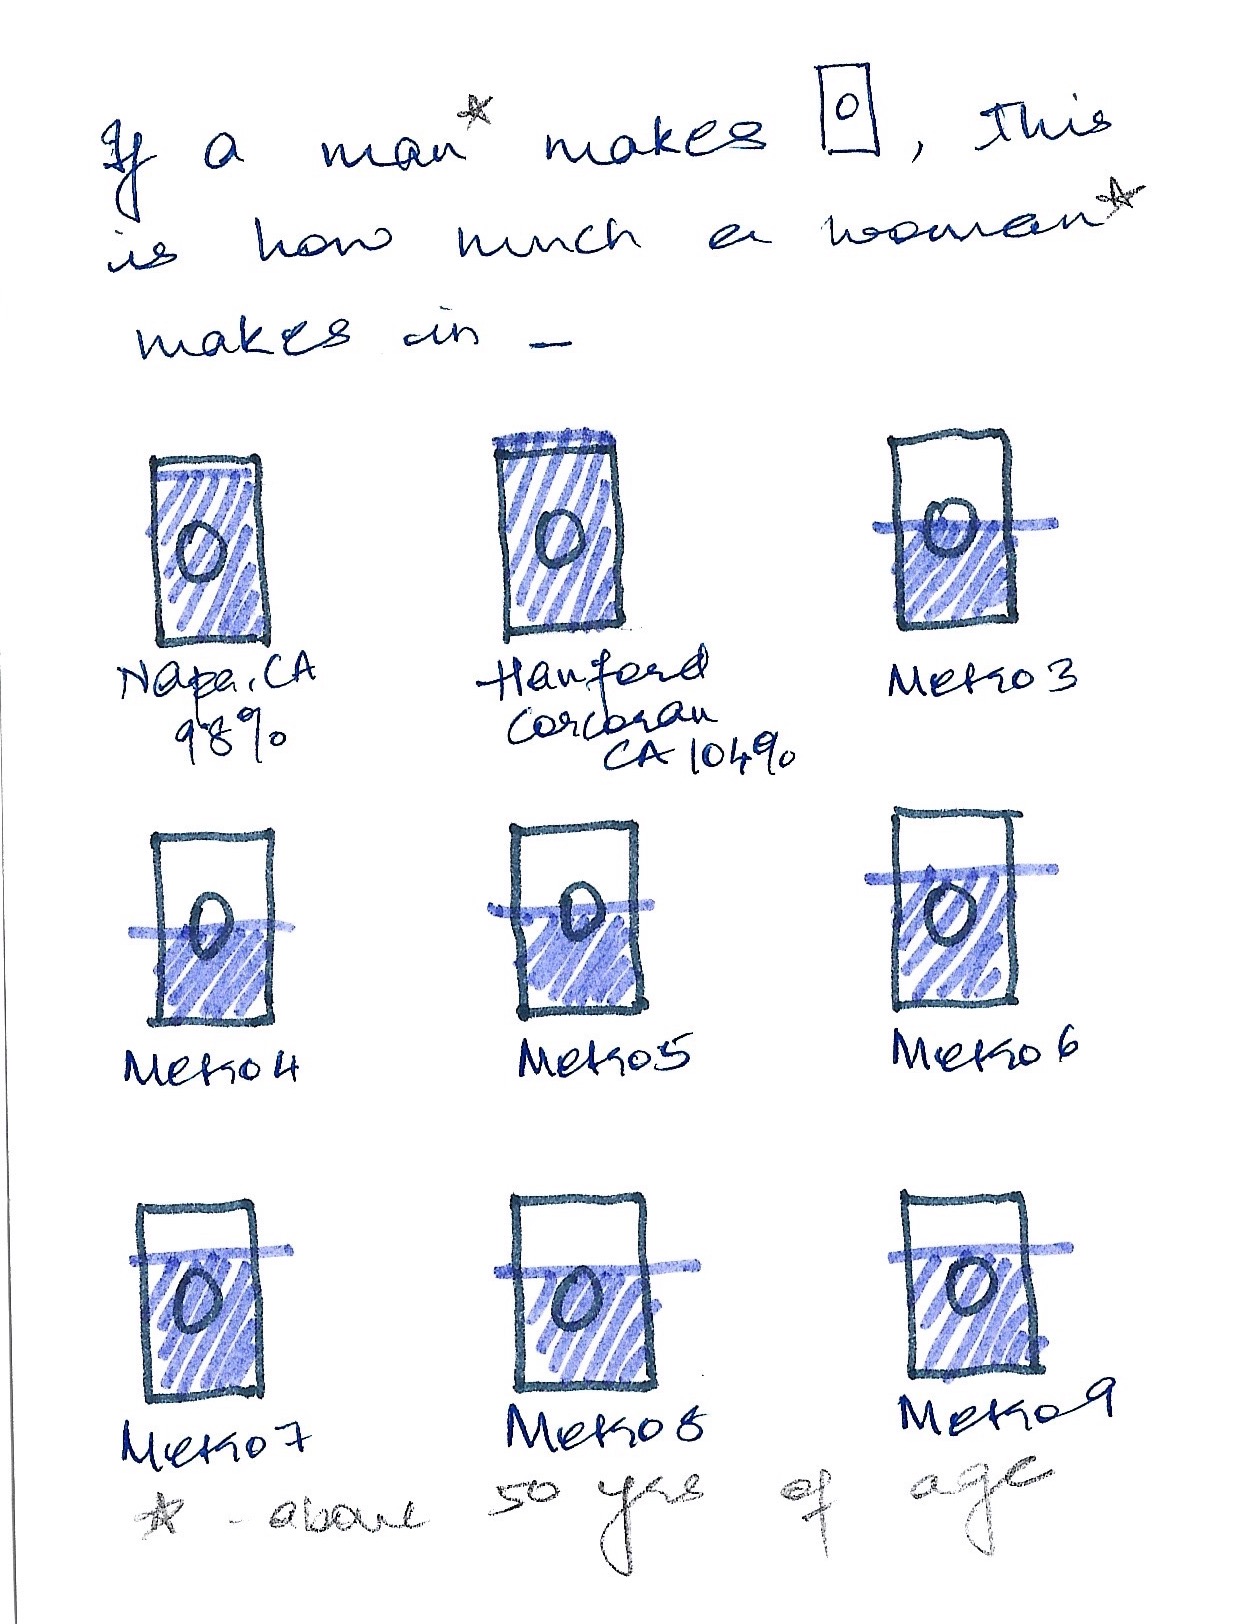 If a man* makes , this
is how much a woman*
makes in -
Napa, CA
98%
Hanford
Corcoran
CA 104%
Metro 3
Metro 4
Metro 5
Metro 6
Metro 7
Metro 8
Metro 9
* - above 50 yrs of age